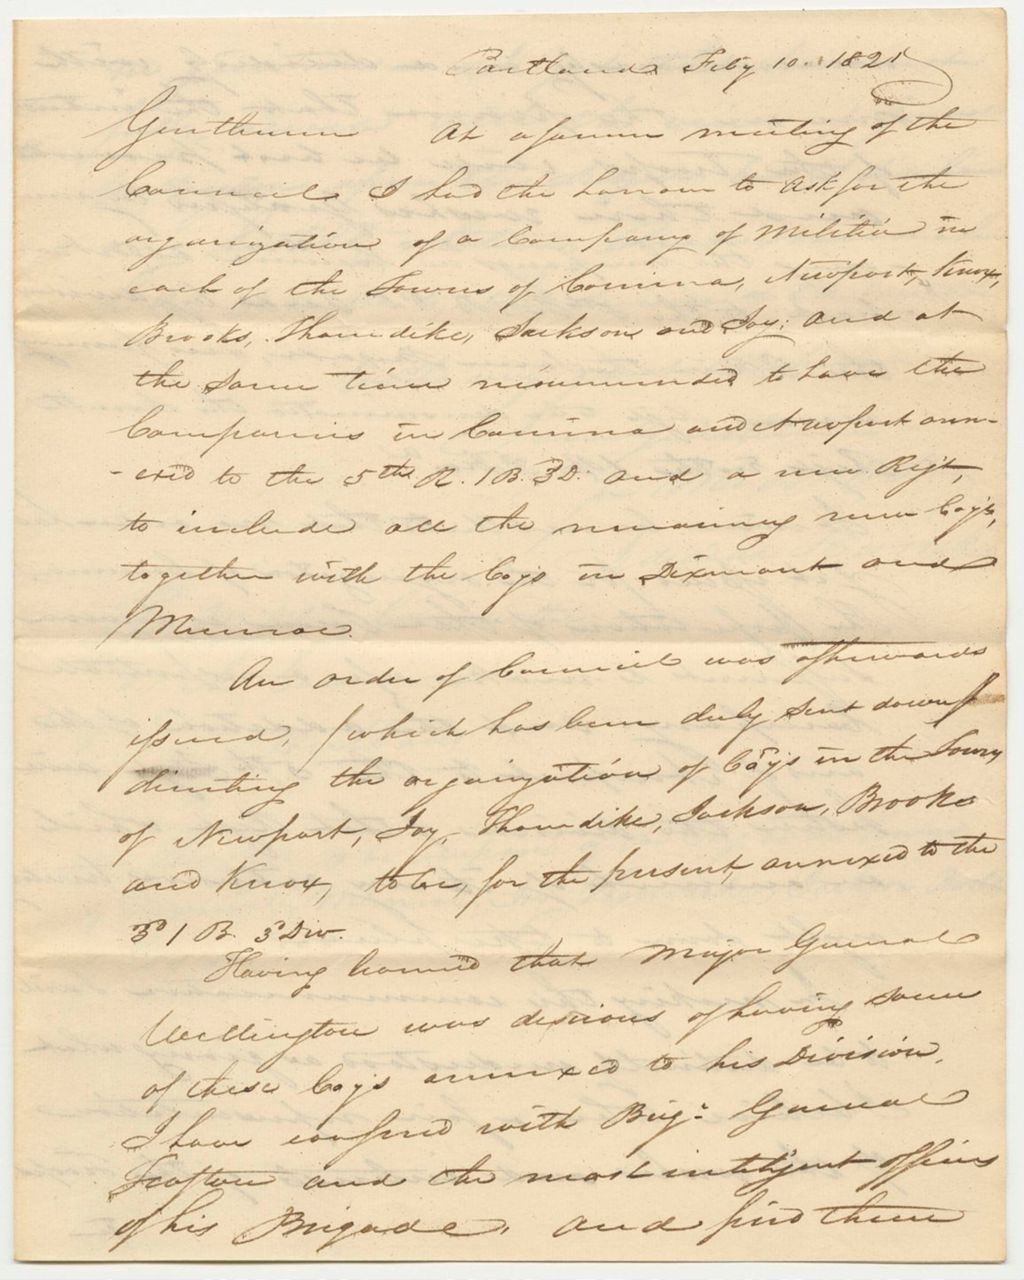 Portland Feby 10. 1821
Gentlemen At a former meeting of the
Council I had the honour to ask for the
organization of a Company of Militia in
each of the Towns of Corinna, Newport, Knox,
Brooks, Thorndike, Jackson and Joy; and at
the same time recommended to have the
Companies in Corinna and Newport ann-
-exed to the 5th R. 1 B. 3 D. and a new Regt,
to include all the remaining new Coys,
together with the Coys in Dixmont and
Munroe.
An order of Council was afterwards
issued, (which has been duly sent down)
directing the organization of Coys in the Towns
of Newport, Joy, Thorndike, Jackson, Brooks
and Knox, to be, for the present, annexed to the
3d 1 B. 3d Div.
Having learned that Major General
Wellington was desirous of having some
of these Coys annexed to his Division,
I have conferred with Brigr General
and the most intelligent officers
of his Brigade, and find them